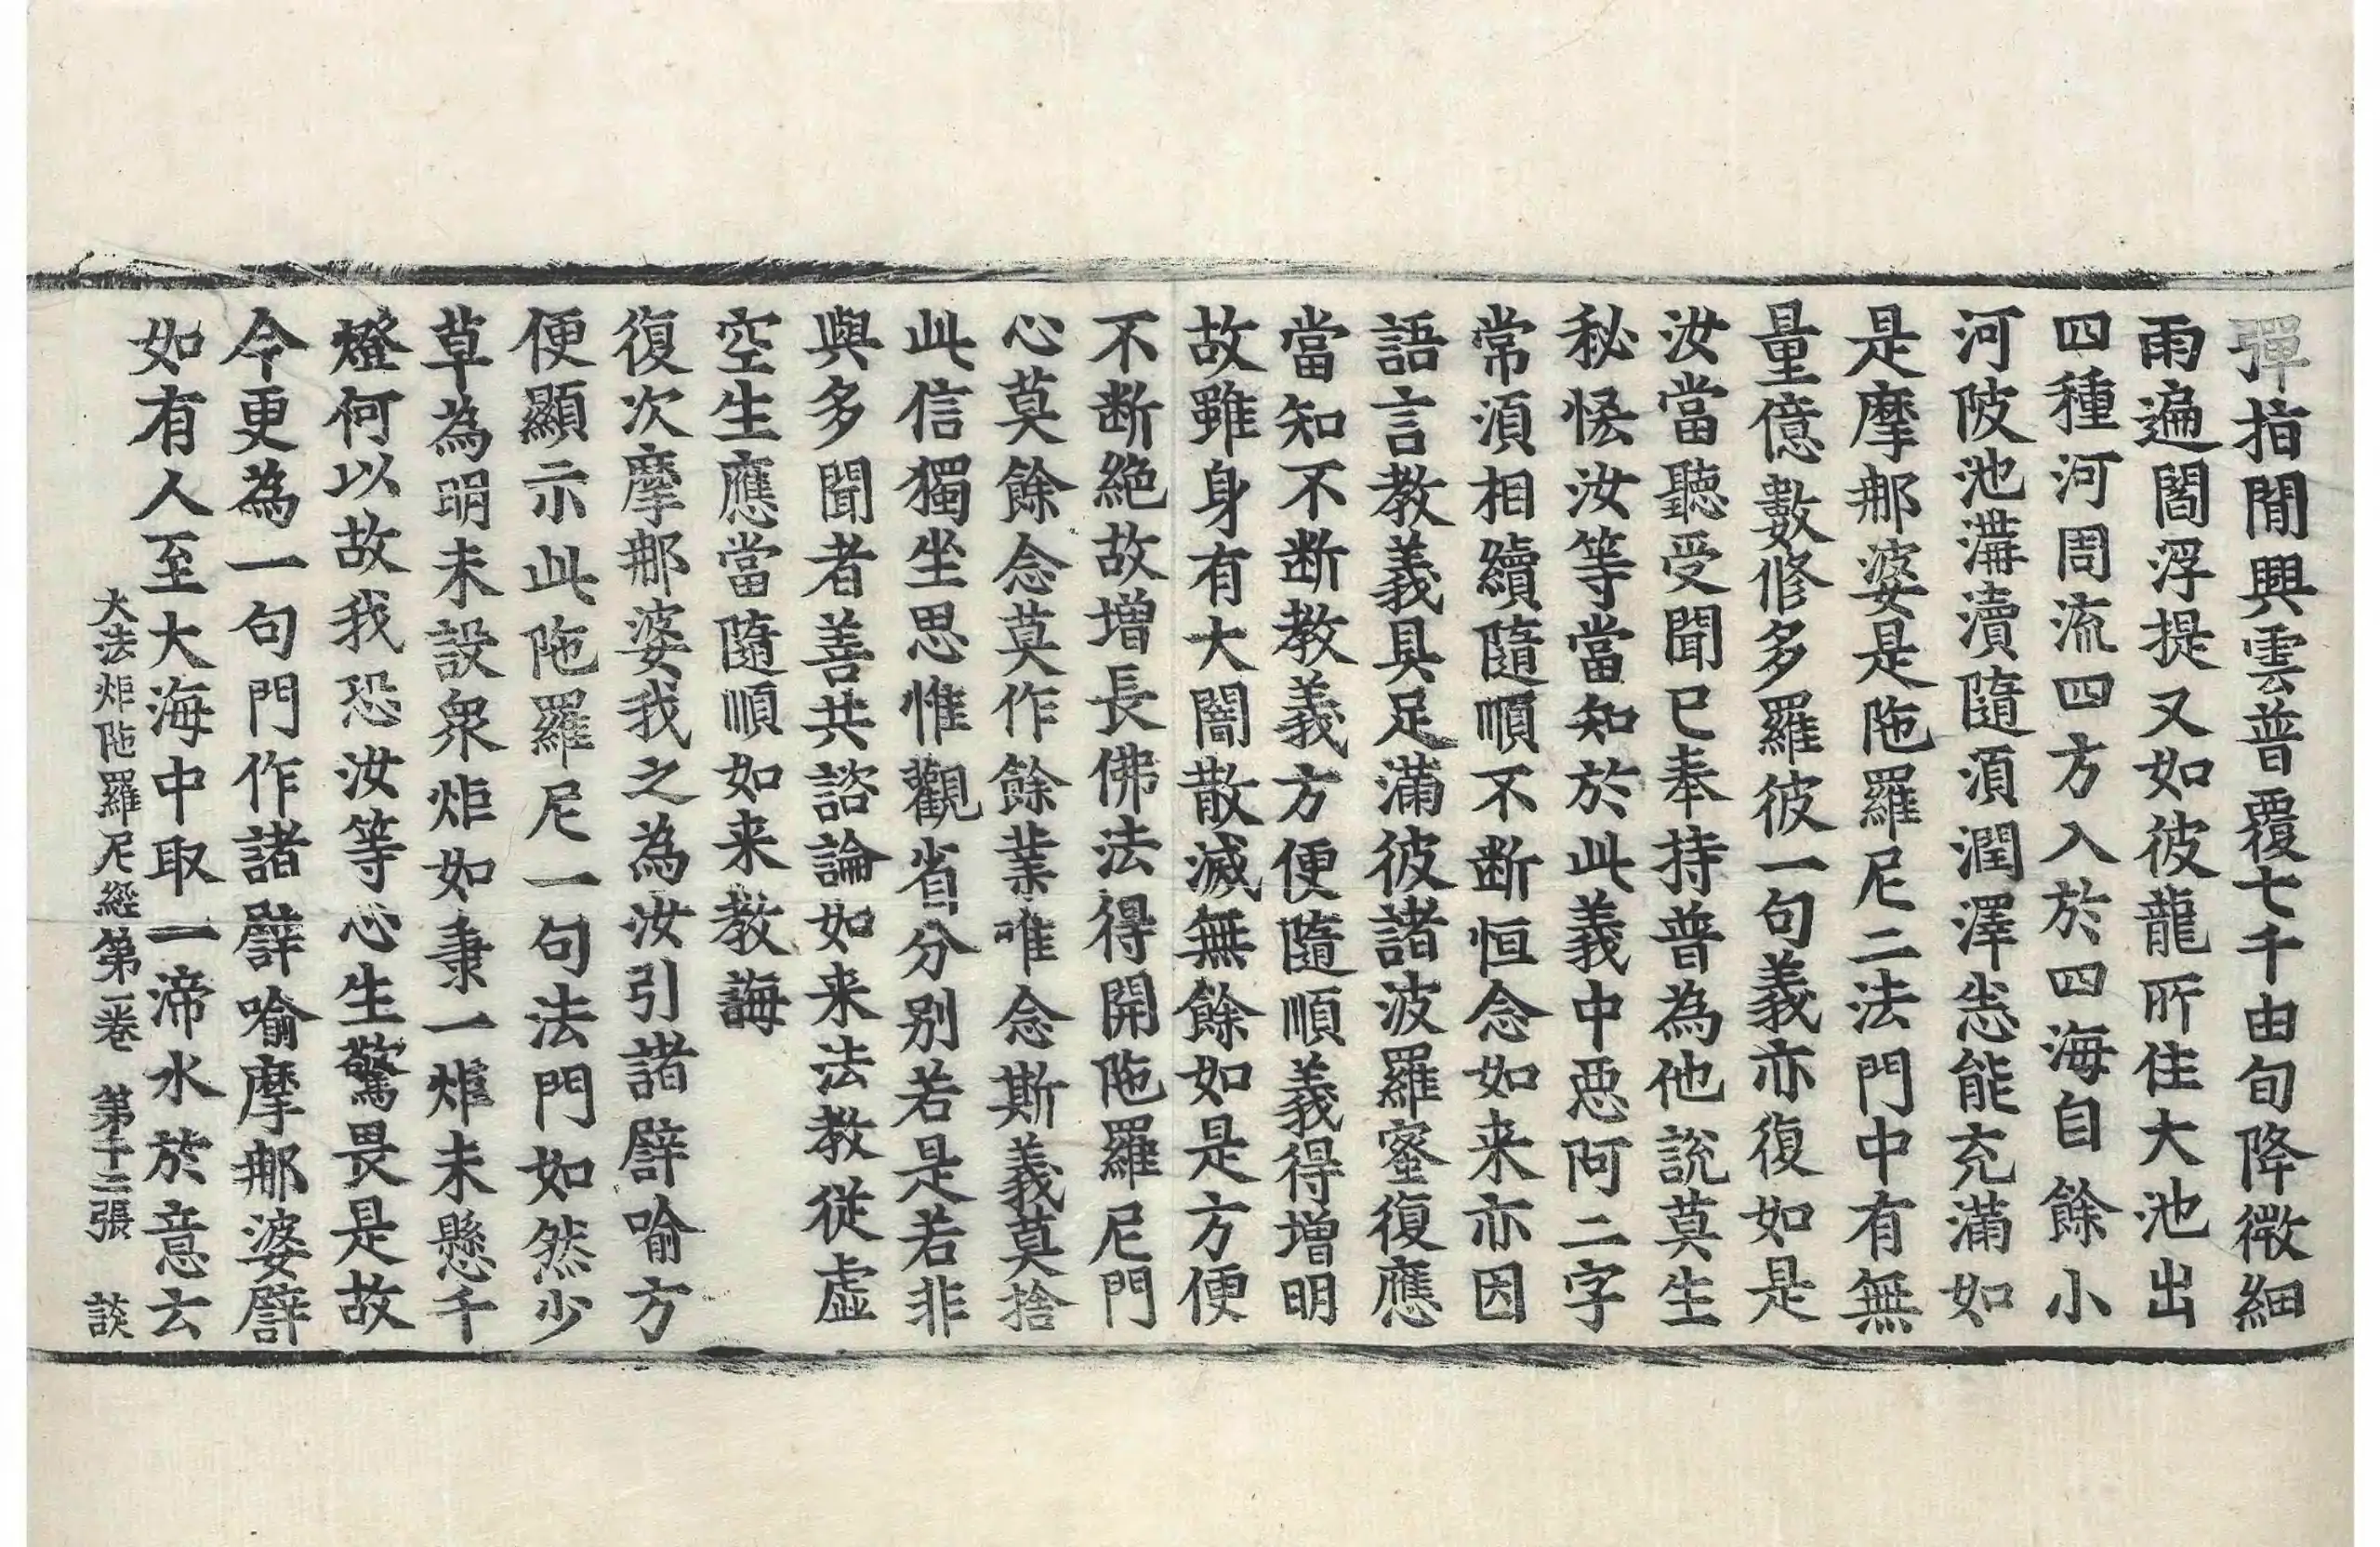 彈指閒興雲普覆七千由旬降微細
雨遍閻浮提又如彼龍所住大池出
四種河周流四方入於四海自餘小
河陂池溝瀆隨湏潤澤悉能充滿如
是摩那婆是陁羅尼二法門中有無
量億數修多羅彼一句義亦復如是
汝當聽受聞已奉持普為他說莫生
秘恡汝等當知於此義中惡阿二字
常湏相續隨順不断恒念如来亦因
語言教義具足滿彼諸波羅蜜復應
當知不断教義方便隨順義得增明
故雖身有大闇散滅無餘如是方便
不断絶故增長佛法得開陁羅尼門
心莫餘念莫作餘業唯念斯義莫捨
此信獨坐思惟觀省分別若是若非
與多聞者善共諮論如来法教從虛
空生應當隨順如来教誨
復次摩那婆我之為汝引諸譬喻方
便顯示此陁羅尼一句法門如然少
草為明未設衆炬如秉一炬未懸千
燈何以故我恐汝等心生驚畏是故
今更為一句門作諸譬喻摩那婆譬
如有人至大海中取一渧水於意云
大法炬陁羅尼經第二卷 第十二張 談